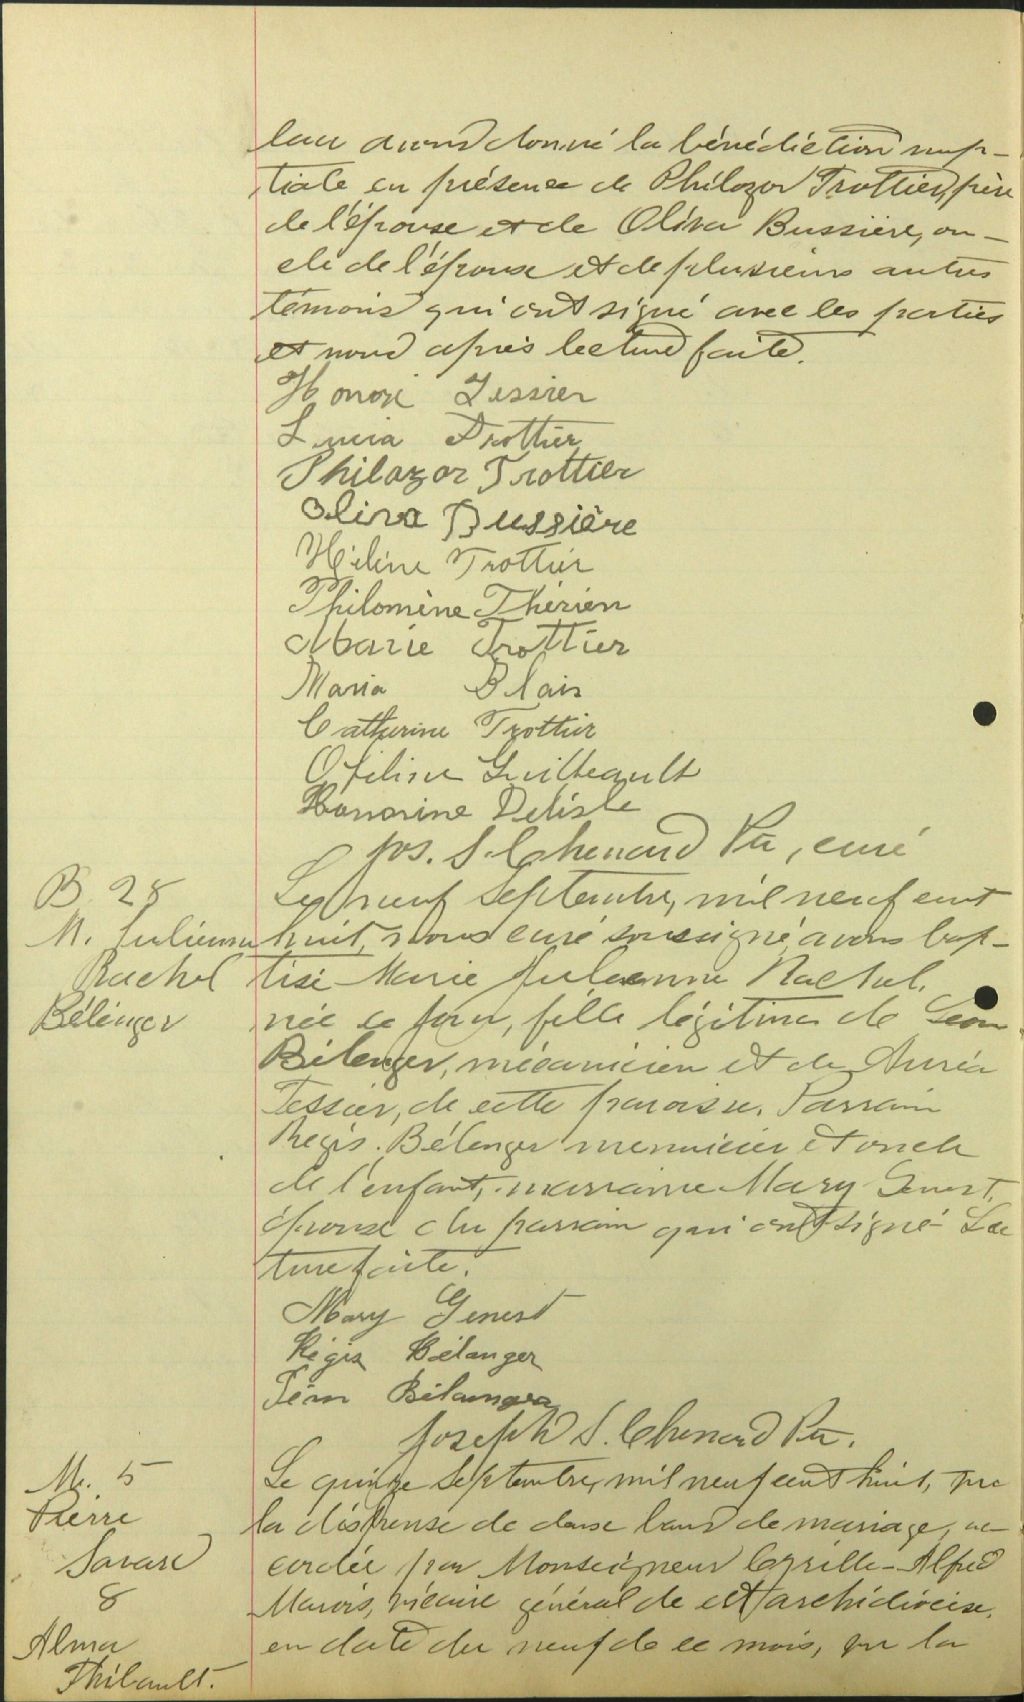 leur avons donné la bénédiction nup-
tiale en présence de Philozor Trottier, père
de l'épouse et de Oliva Bussière, on-
cle de l'épouse et de plusieurs autres
témoins qui ont signé avec les parties
et nous après lecture faite.
Honoré Tessier
Lucia Trottier
Philazor Trottier
Oliva Bussière
Hélène Trottier
Philomène Thérien
Marie Trottier
Maria Blais
Catherine Trottier
Guilbeault
Honorine Delisle
Jos. S. Chenard Ptr, curé
B. 28
M. Julienne
Rachel
Bélanger
Le neuf Septembre, mil neuf cent
huit, nous curé soussigné, avons bap-
tisé Marie Julienne Rachel,
née ce jour, fille légitime de Léon
Bélanger, mécanicien et de Auréa
Tessier, de cette paroisse. Parrain
Régis Bélanger menuisier et oncle
de l'enfant, marraine Mary Genest,
épouse du parrain qui ont signé Lec
ture faite.
Mary Genest
Régis Bélanger
Bélanger
Joseph S. Chenard Ptr.
M. 5
Pierre
Savard
&
Alma
Thibault.
Le quinze Septembre, mil neuf cent huit, vu
la dispense de deux bans de mariage, ac-
cordée par Monseigneur Cyrille-Alfred
Marois, vicaire général de cet archidiocèse,
en date du neuf de ce mois, vu la